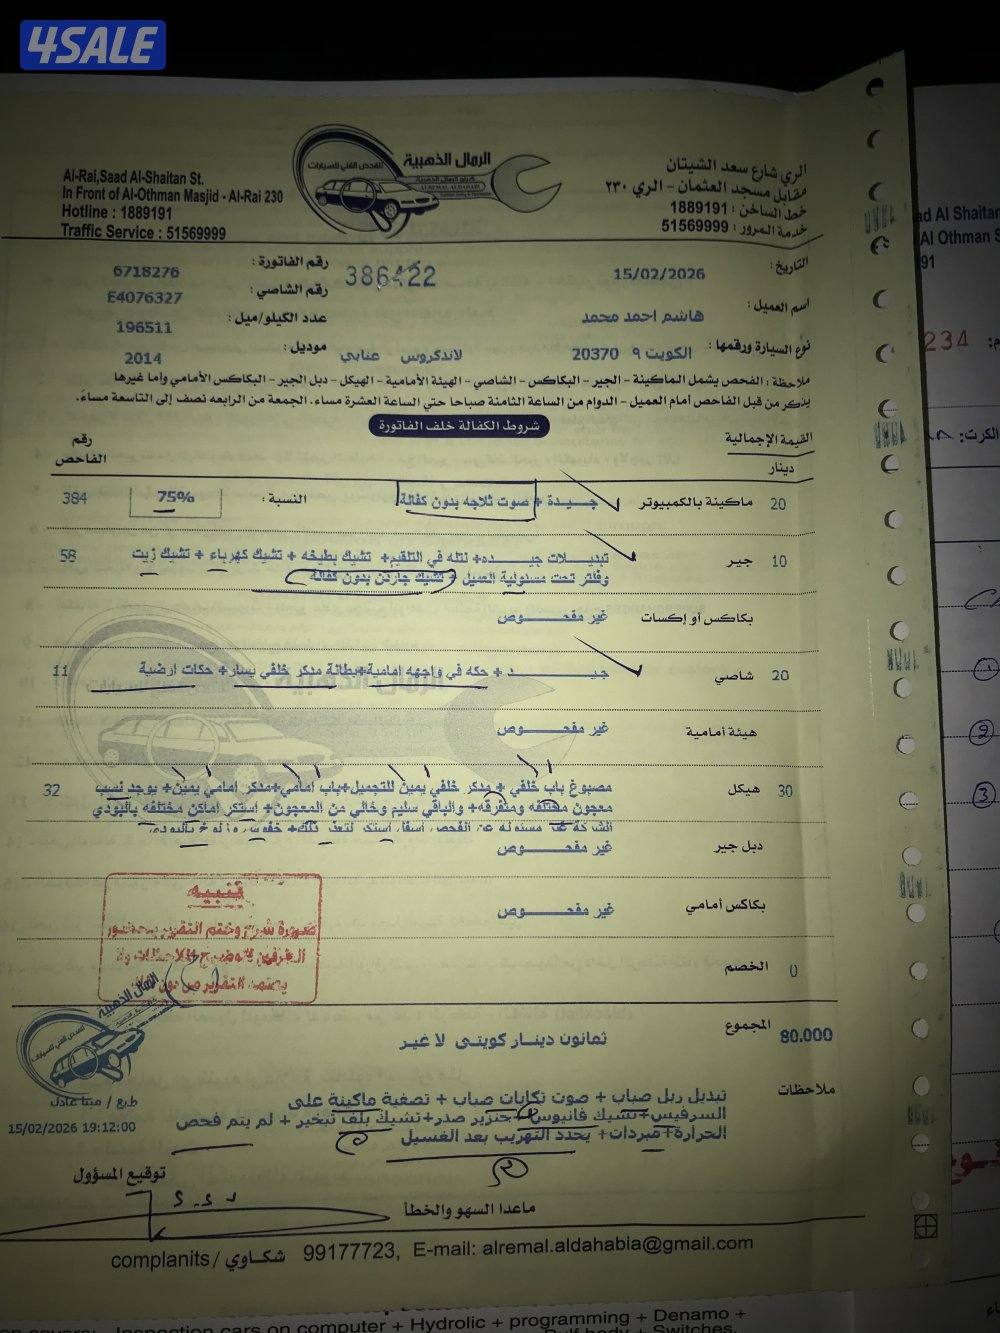 4SALE
Al-Rai,Saad Al-Shaitan St.
In Front of Al-Othman Masjid - Al-Rai 230
Hotline : 1889191
Traffic Service : 51569999
الرمال الذهبية
للفحص الفني للسيارات
الري شارع سعد الشيتان
مقابل مسجد العثمان - الري ٢٣٠
خط الساخن : 1889191
خدمة المرور : 51569999
التاريخ : 15/02/2026
رقم الفاتورة : 6718276
386422
رقم الشاصي : E4076327
اسم العميل : هاشم احمد محمد
عدد الكيلو/ميل : 196511
نوع السيارة ورقمها : الكويت ٩ 20370 لاندكروس عنابي
موديل : 2014
ملاحظة : الفحص يشمل الماكينة - الجير - البكاكس - الشاصي - الهيئة الأمامية - الهيكل - دبل الجير - البكاكس الأمامي وأما غيرها
يذكر من قبل الفاحص أمام العميل - الدوام من الساعة الثامنة صباحا حتي الساعة العشرة مساء. الجمعة من الرابعه نصف إلى التاسعة مساء.
شروط الكفالة خلف الفاتورة
القيمة الإجمالية
دينار
رقم الفاحص
20 ماكينة بالكمبيوتر جيدة + صوت ثلاجه بدون كفالة النسبة : 75% 384
10 جير تبديلات جيده+ نتله في التلقيم+ تشيك بطيخه + تشيك كهرباء + تشيك زيت 58
وفلتر تحت مسئولية العميل + تشيك جاردن بدون كفالة
بكاكس أو إكسات غير مفحوص
20 شاصي جيد + حكه في واجهه امامية+بطانة مدكر خلفي يسار+ حكات ارضية 11
هيئة أمامية غير مفحوص
30 هيكل مصبوغ باب خلفي + مدكر خلفي يمين للتجميل+باب امامي+مدكر امامي يمين+ يوجد نسب 32
معجون مختلفه ومتفرقه+ والباقي سليم وخالي من المعجون+ استكر اماكن مختلفه بالبودي
الشركة غير مسئوله عن الفحص اسفل استكر لتعذر ذلك+
دبل جير غير مفحوص
بكاكس أمامي غير مفحوص
تنبيه
ضرورة شرح وختم التقرير بحضور
الطرفين لتوضيح الملاحظات ولا
يعتمد التقرير من دون
الخصم 0
المجموع 80.000
ثمانون دينار كويتي لا غير
الرمال الذهبية
ملاحظات
تبديل ربل صباب + صوت تكايات صباب + تصفية ماكينة على
السرفيس+ تشيك فانيوس+ جنزير صدر+تشيك بلف تبخير + لم يتم فحص
الحرارة+ مبردات+ يحدد التهريب بعد الغسيل
طبع / مينا عادل
15/02/2026 19:12:00
توقيع المسؤول
ماعدا السهو والخطأ
complanits / شكاوي 99177723, E-mail: alremal.aldahabia@gmail.com
Inspection cars on computer + Hydrolic + programming + Denamo +
Switches.
ad Al Shaitan
Al Othman
91
234
الكرت: